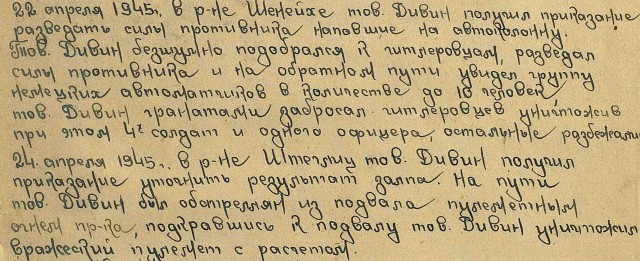 22 апреля 1945г. в р-не Шенейхе тов. Дивин получил приказание
разведать силы противника напавшие на автоколонну.
Тов. Дивин бесшумно подобрался к гитлеровцам, разведал
силы противника и на обратном пути увидел группу
немецких автоматчиков в количестве до 10 человек
тов. Дивин гранатами забросал гитлеровцев уничтожив
при этом 4х солдат и одного офицера, остальные разбежали
24. апреля 1945г. в р-не Штеглиц тов. Дивин получил
приказание уточнить результат залпа. На пути
тов. Дивин был обстрелян из подвала пулеметным
огнем пр-ка, подкравшись к подвалу тов. Дивин уничтожил
вражеский пулемет с расчетом.